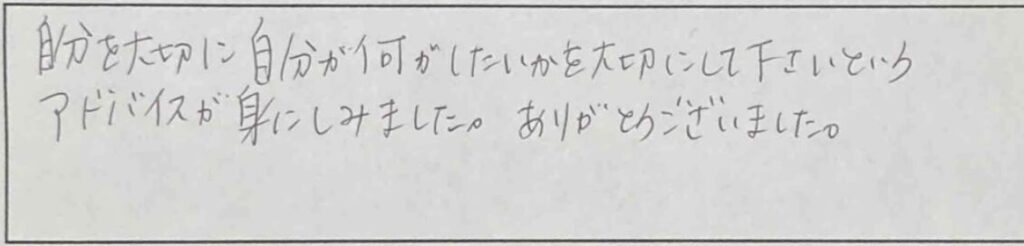 自分を大切に自分が何がしたいかを大切にして下さいという
アドバイスが身にしみました。ありがとうございました。